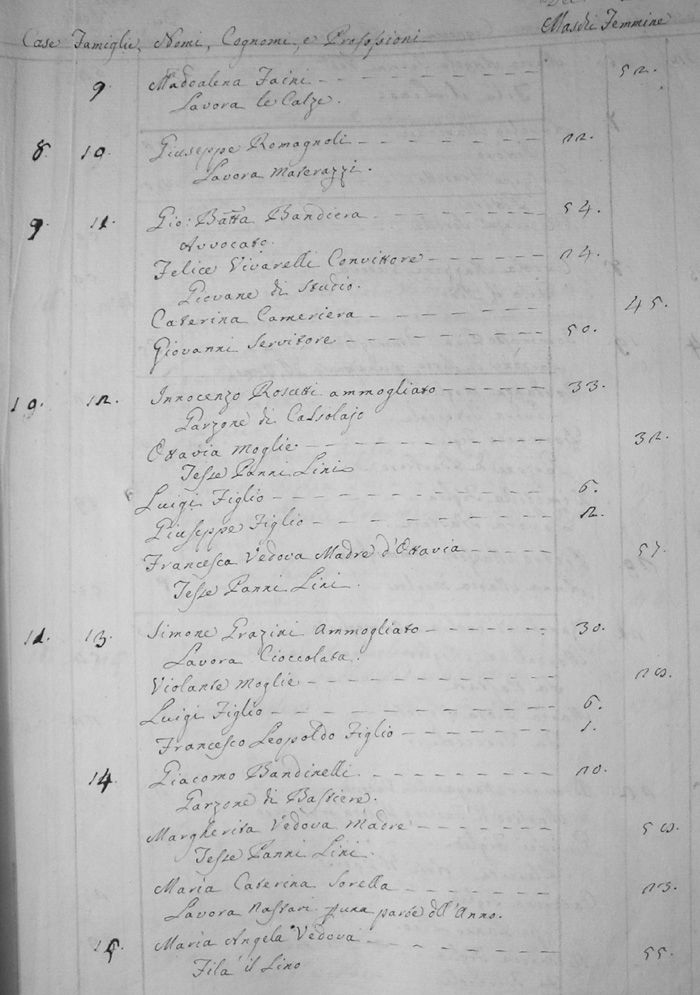 Maschi Femmine
Case Famiglie, Nomi, Cognomi, e Professioni
9. Maddalena Faini 52.
Lavora le Calze.
8. 10. Giuseppe Romagnoli 22.
Lavora Materazzi.
9. 11. Gio: Batta Bandiera 54.
Avvocato.
Felice Vivarelli Convittore 24.
Giovane di Studio.
Caterina Cameriera 45.
Giovanni Servitore 50.
10. 12. Innocenzo Rosetti ammogliato 33.
Garzone di Cassolajo
Ottavia Moglie 32.
Tesse Panni Lini
Luigi Figlio 6.
Giuseppe Figlio 2.
Francesca Vedova Madre d'Ottavia 57.
Tesse Panni Lini.
11. 13. Simone Grazini Ammogliato 30.
Lavora Cioccolata.
Violante Moglie 28.
Luigi Figlio 6.
Francesco Leopoldo Figlio 1.
14. Giacomo Bandinelli 20.
Garzone di Bastiere.
Margherita Vedova Madre 58.
Tesse Panni Lini.
Maria Caterina Sorella 25.
Lavora Nastari una parte dell'Anno.
15. Maria Angela Vedova 55.
Fila il Lino